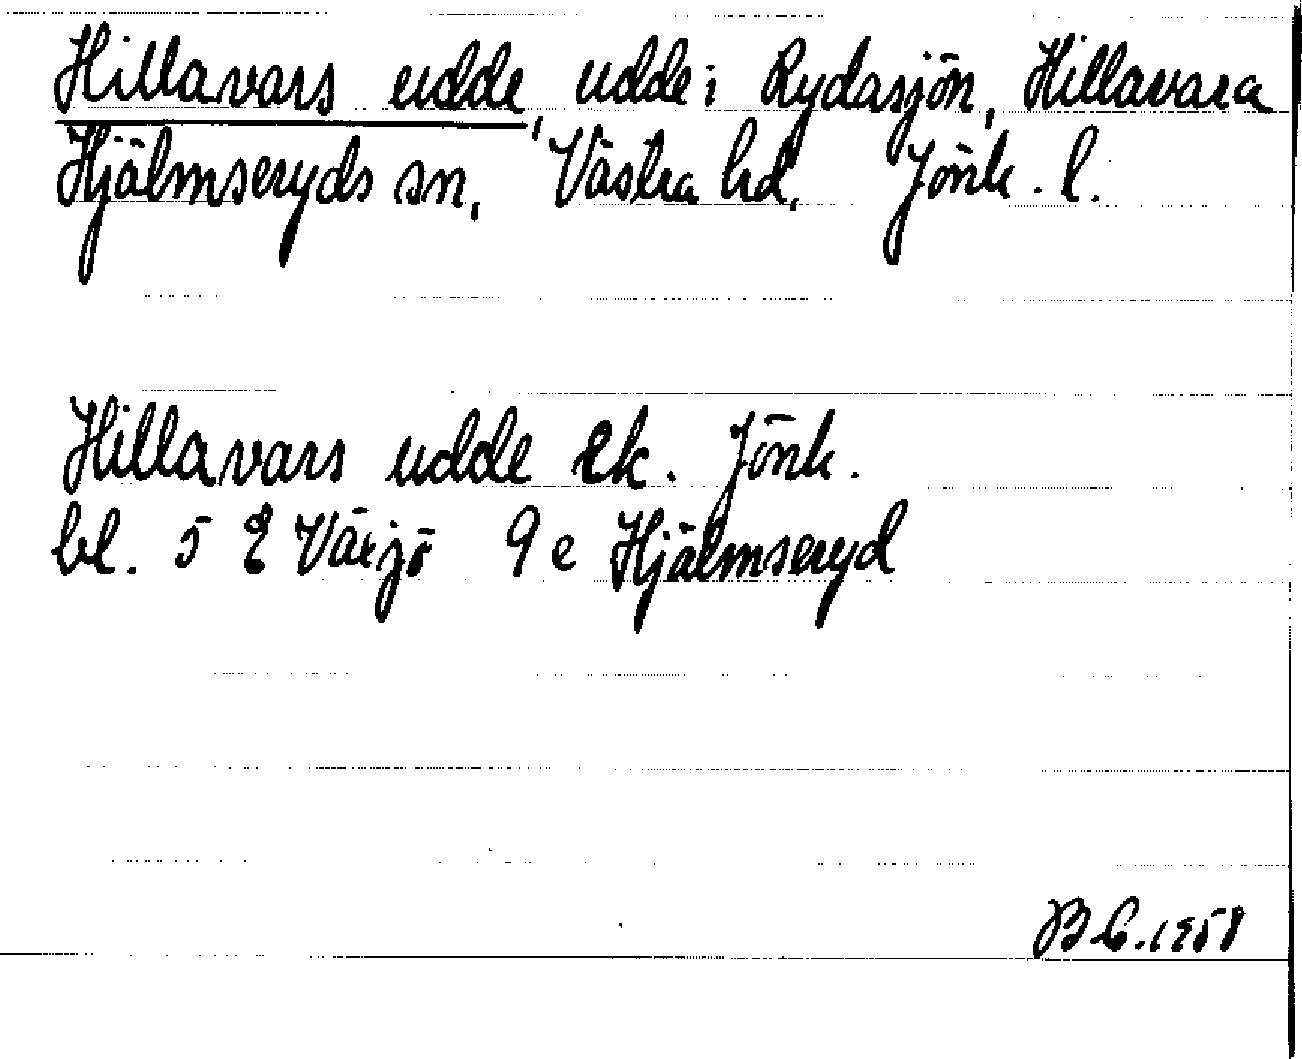 Hillavars udde, udde i Rydasjön, Hillavara
Hjälmseryds sn, Västra hd, Jönk. l.
Hillavars udde Ek. Jönk.
bl. 5 E Växjö 9 e Hjälmseryd
B C. 1958